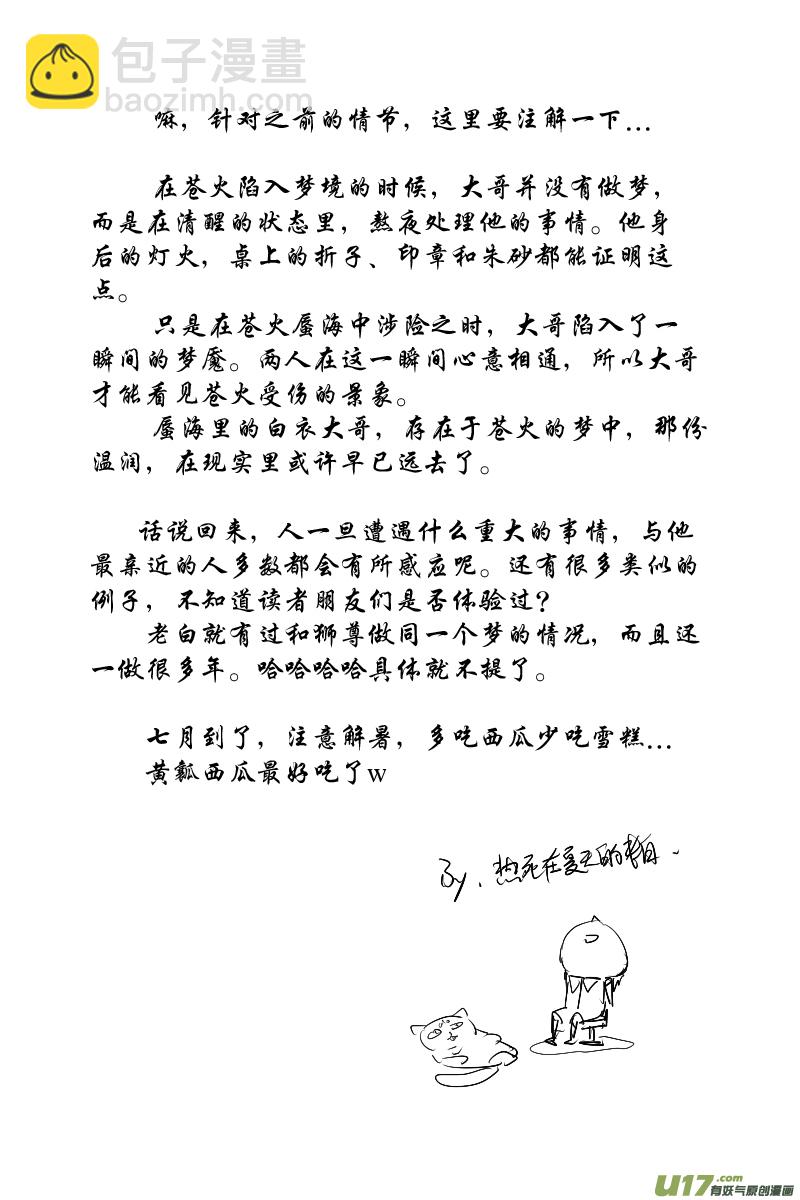 包子漫畫
baozimh.com
嘛，针对之前的情节，这里要注解一下...
在苍火陷入梦境的时候，大哥并没有做梦，
而是在清醒的状态里，熬夜处理他的事情。他身
后的灯火，桌上的折子、印章和朱砂都能证明这
点。
只是在苍火蜃海中涉险之时，大哥陷入了一
瞬间的梦魇。两人在这一瞬间心意相通，所以大哥
才能看见苍火受伤的景象。
蜃海里的白衣大哥，存在于苍火的梦中，那份
温润，在现实里或许早已远去了。
话说回来，人一旦遭遇什么重大的事情，与他
最亲近的人多数都会有所感应呢。还有很多类似的
例子，不知道读者朋友们是否体验过？
老白就有过和狮尊做同一个梦的情况，而且还
一做很多年。哈哈哈哈具体就不提了。
七月到了，注意解暑，多吃西瓜少吃雪糕...
黄瓤西瓜最好吃了w
By. 热死在夏天的老白~
U17.com
有妖气原创漫画